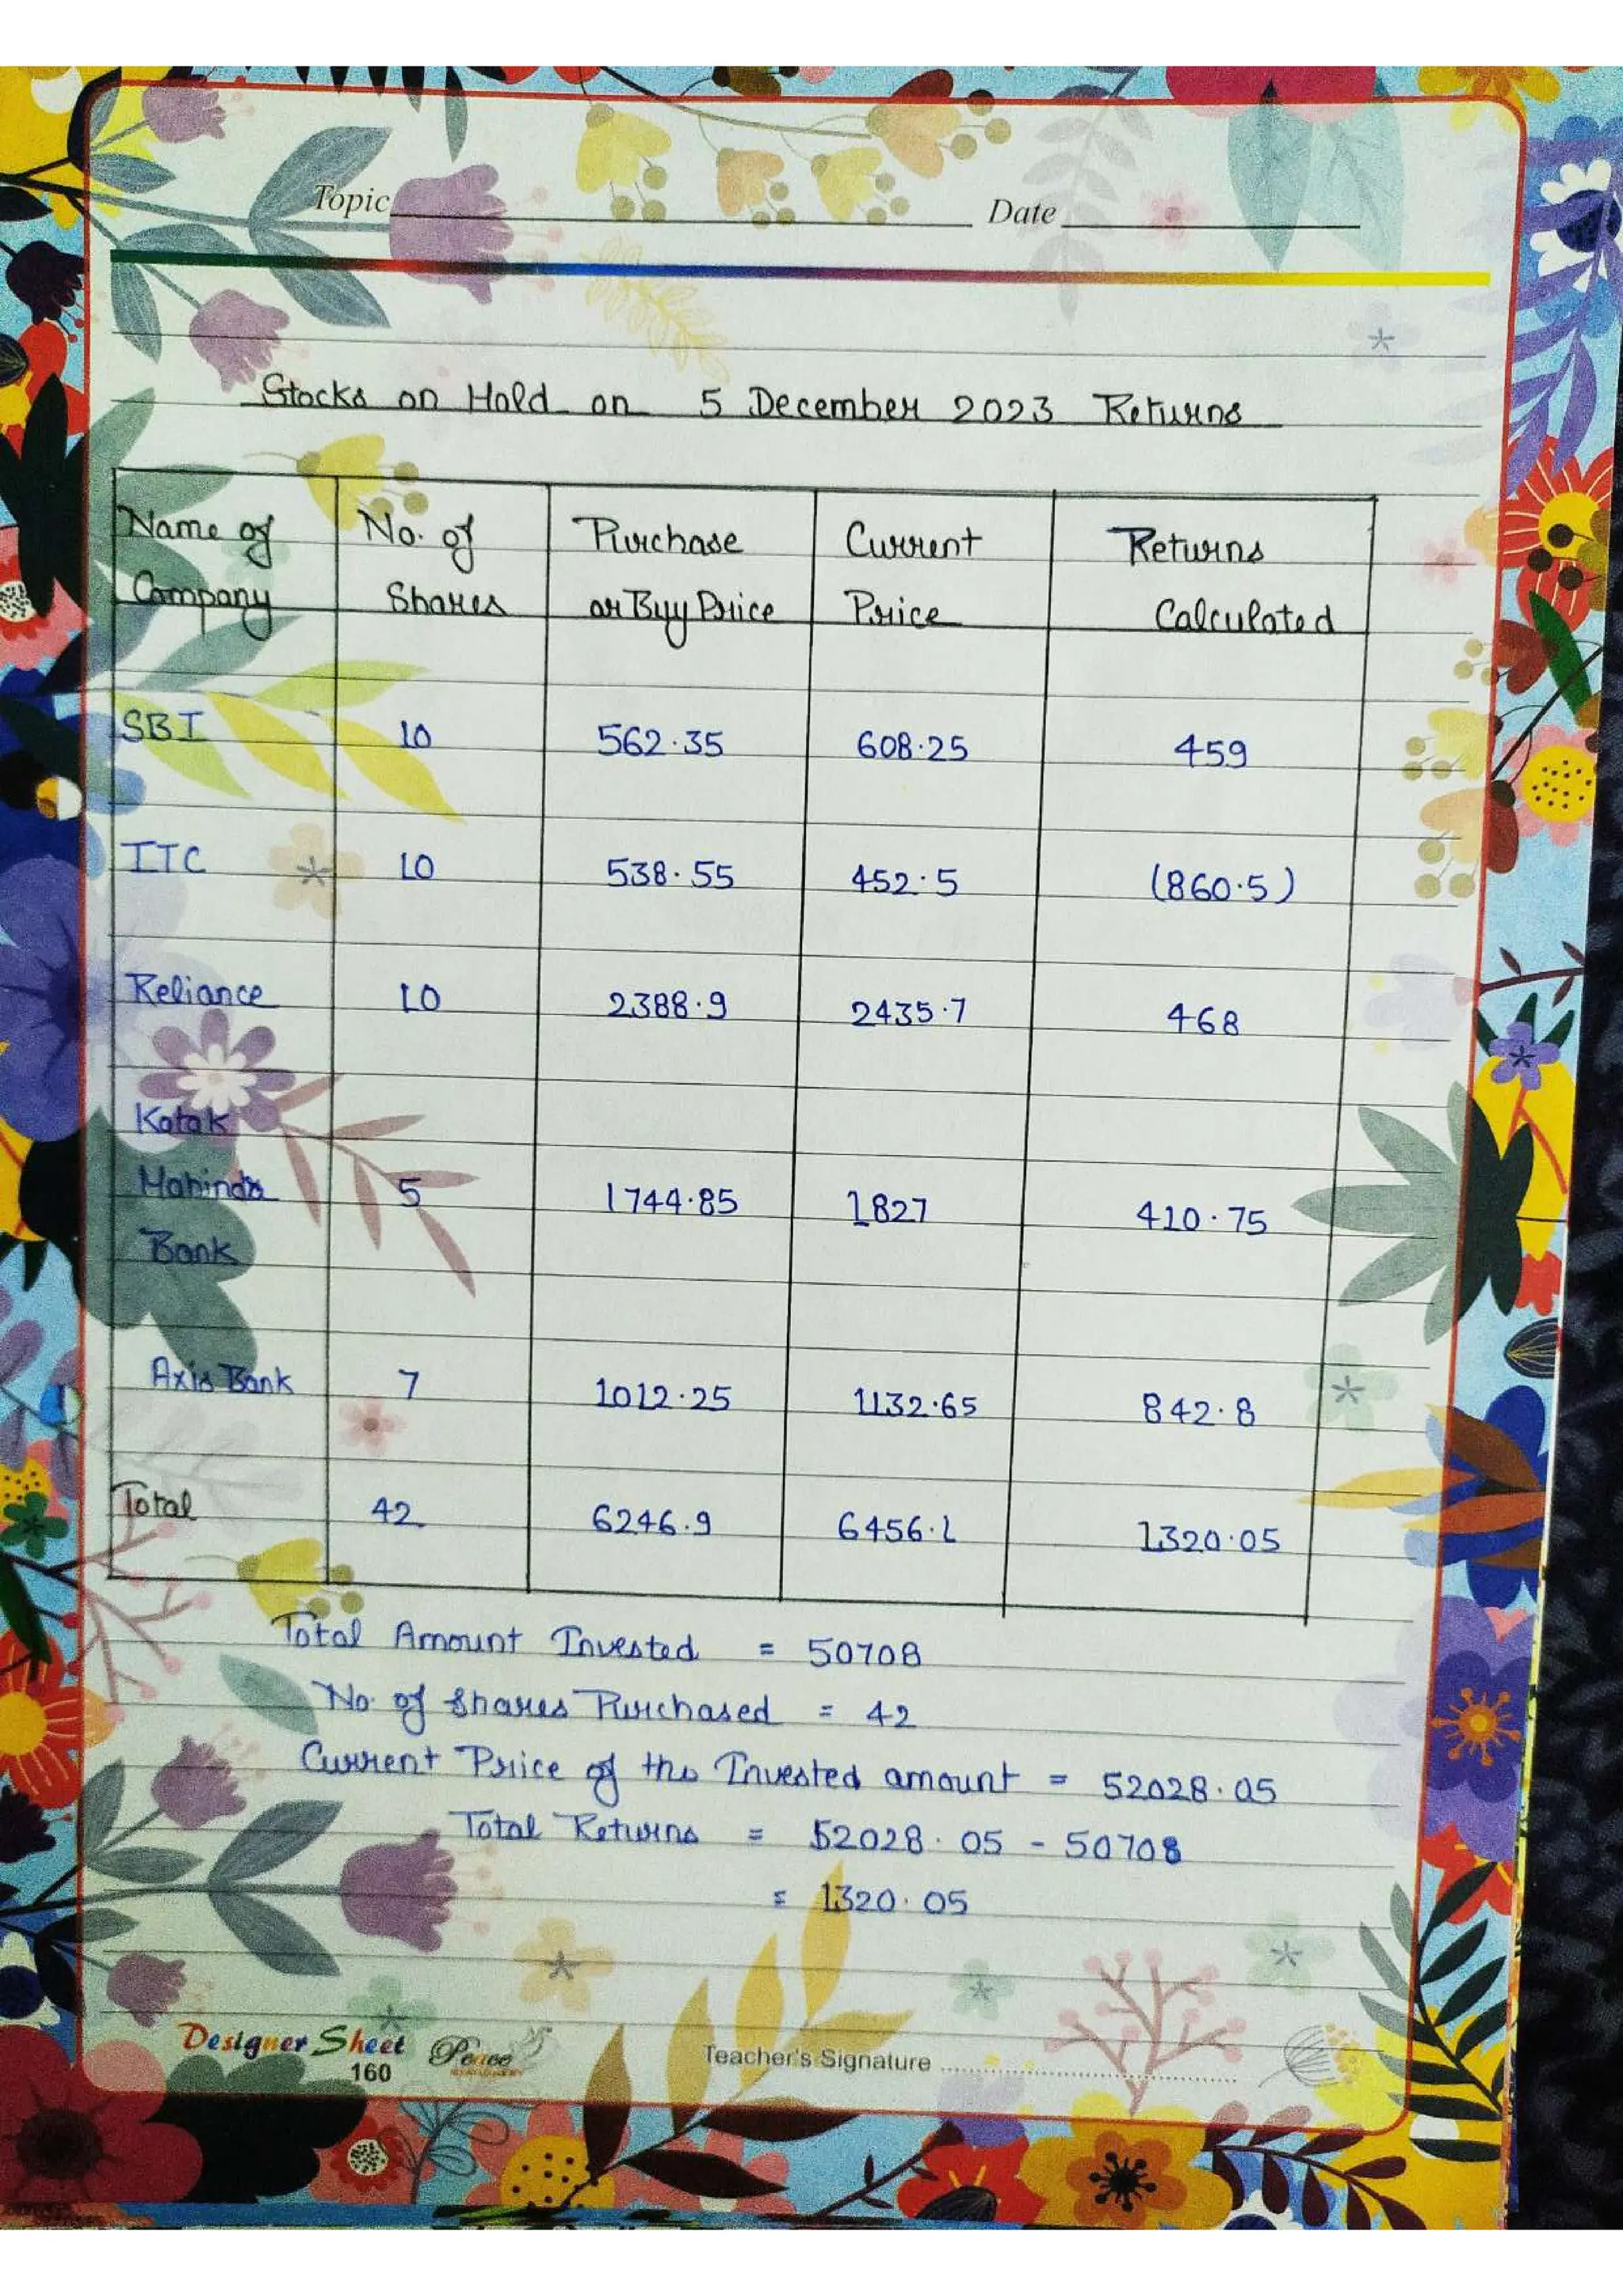 Topic Date
Stocks on Hold on 5 December 2023 Returns
Name of Company No. of Shares Purchase or Buy Price Current Price Returns Calculated
SBI 10 562.35 608.25 459
ITC 10 538.55 452.5 (860.5)
Reliance 10 2388.9 2435.7 468
Kotak
Mahindra 5 1744.85 1827 410.75
Bank
Axis Bank 7 1012.25 1132.65 842.8
Total 42 6246.9 6456.1 1320.05
Total Amount Invested = 50708
No. of Shares Purchased = 42
Current Price of the Invested amount = 52028.05
Total Returns = 52028.05 - 50708
= 1320.05
Designer Sheet Peace
160 Teacher's Signature